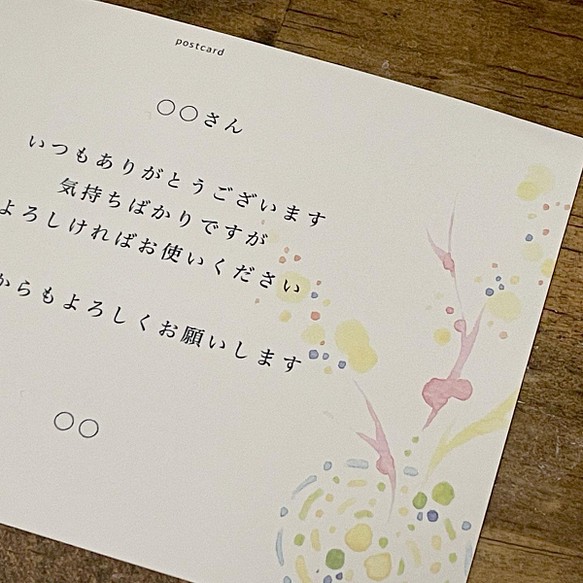 postcard
〇〇さん
いつもありがとうございます
気持ちばかりですが
よろしければお使いください
からもよろしくお願いします
〇〇